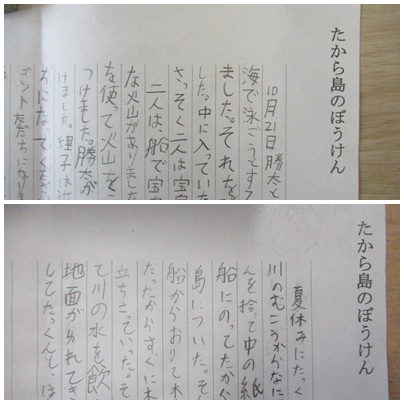 たから島のぼうけん
10月21日勝太と
海で泳ごうとする
ました。それを
した。中に入ってい
さっそく二人は宝
二人は、船で宝
な火山がありました
を使って火山を
つけました。勝太が
けました。理子は
おになってくださ
たから島のぼうけん
夏休みにたっく
川のむこうからなに
んを拾って中の紙
船にのってたから
島についた。そ
船からおりて木
だったからすぐに木
立ちさっていった。そ
て川の水を飲
地面がわれてき
してたっくんとは